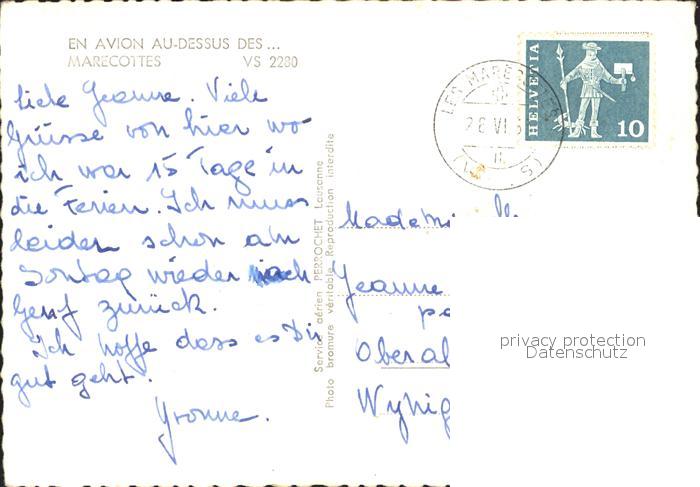 EN AVION AU-DESSUS DES...
MARECOTTES VS 2280
liebe Jeanne. Viele
Grüsse von hier wo
ich war 15 Tage in
die Ferien. Ich muss
leider schon am
Sontag wieder nach
Genf zurück.
Ich hoffe dass es Dir
gut geht.
Yvonne.
Service aérien PERROCHET Lausanne
Photo bromure véritable Reproduction interdite
HELVETIA
10
LES MARECOTTES
28 VI
Jeanne
Oberal
Wynig
privacy protection
Datenschutz